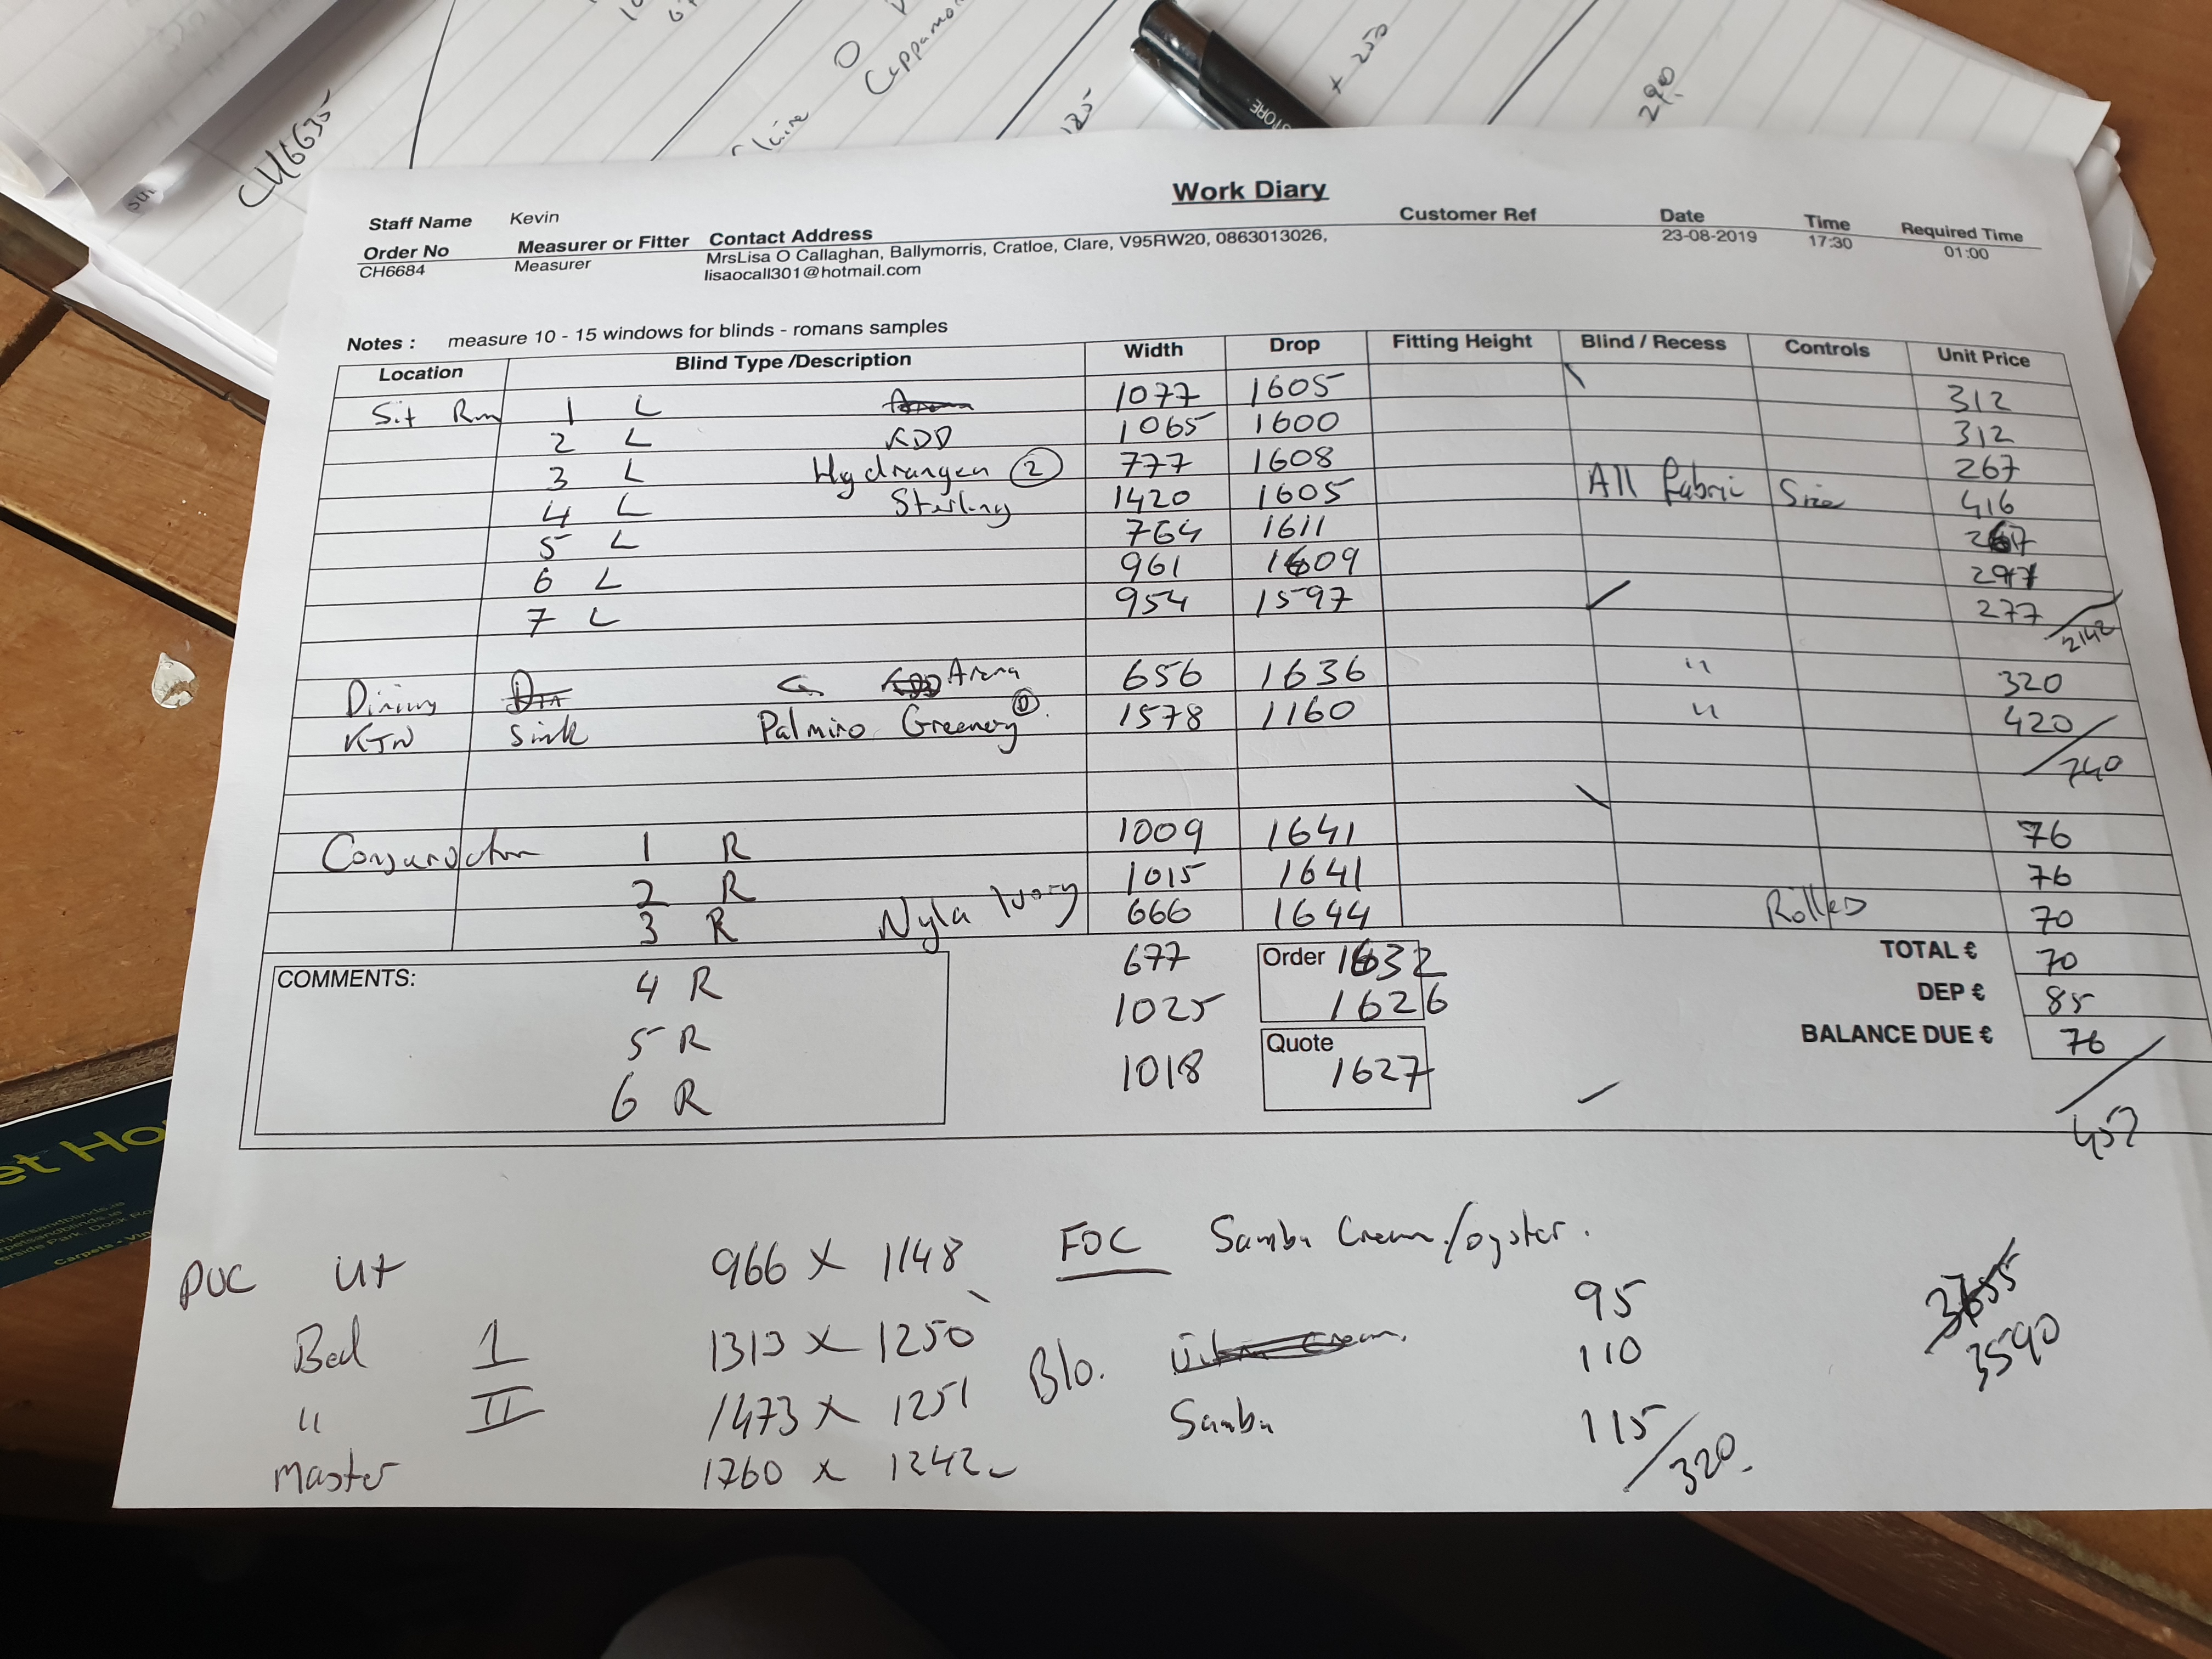 CH6635
Claire
O
125
+ 250
290
STORE
Work Diary
Staff Name Kevin
Order No Measurer or Fitter Contact Address Customer Ref Date Time Required Time
CH6684 Measurer MrsLisa O Callaghan, Ballymorris, Cratloe, Clare, V95RW20, 0863013026, 23-08-2019 17:30 01:00
lisaocall301@hotmail.com
Notes : measure 10 - 15 windows for blinds - romans samples
Location Blind Type /Description Width Drop Fitting Height Blind / Recess Controls Unit Price
Sit Rm 1 L 1077 1605 312
2 L KDD 1065 1600 312
3 L Hydrangea 2 777 1608 267
4 L Sterling 1420 1605 All Fabric Size 416
5 L 764 1611 267
6 L 961 1609 297
7 L 954 1597 277
2142
Dining G Arena 656 1636 " 320
KTN Sink Palmiro Greenery 1578 1160 " 420
740
1 R 1009 1641 76
2 R 1015 1641 76
3 R Nyla Ivory 666 1644 Rolled 70
COMMENTS: 4 R 677 Order 1632 TOTAL € 70
5 R 1025 1626 DEP € 85
6 R 1018 Quote 1627 BALANCE DUE € 76
PVC Ut 966 x 1148 FOC Samba Cream/oyster.
Bed 1 1313 x 1250 95
" II 1473 x 1251 Blo. 110
Master 1760 x 1242 Samba 115
320.
3655
3590
et Ho